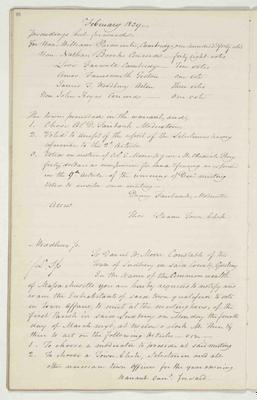 February 1839
proceedings had, forwarded
For Hon. William Parmenter, Cambridge, one hundred & fifty
Hon. Nathan Brooks Concord - forty eight votes
Levi Farwell Cambridge - Ten votes
Amos Farnsworth Groton one vote
James T. Woodbury Acton three votes
Hon John Keyes Concord - one vote
The town proceeded in the warrant, and,
1. Chose Moderator
2. Voted to accept of the report of the Selectmen having
reference to the 2d Article.
3. Voted on motion of
forty dollars as compensation for land
in the 9th Article of the warning of meeting
Voted to dissolve said meeting.
Moderator
Attest
Town Clerk
Middlesex ss.
To David W. Moore Constable of the
Town of Sudbury in said County, Greeting
In the Name of the Commonwealth
of Massachusetts you are hereby required to notify and
warn the Inhabitants of said town qualified to vote
in town affairs to meet at the meeting house, of the
first Parish in said Sudbury on Monday the fourth
day of March next, at o clock then &
there to act on the following Articles - viz -
1. To choose a moderator to preside at said meeting
2. To choose a Town Clerk, Selectmen and all
other necessary town Officers for the year ensuing
forward